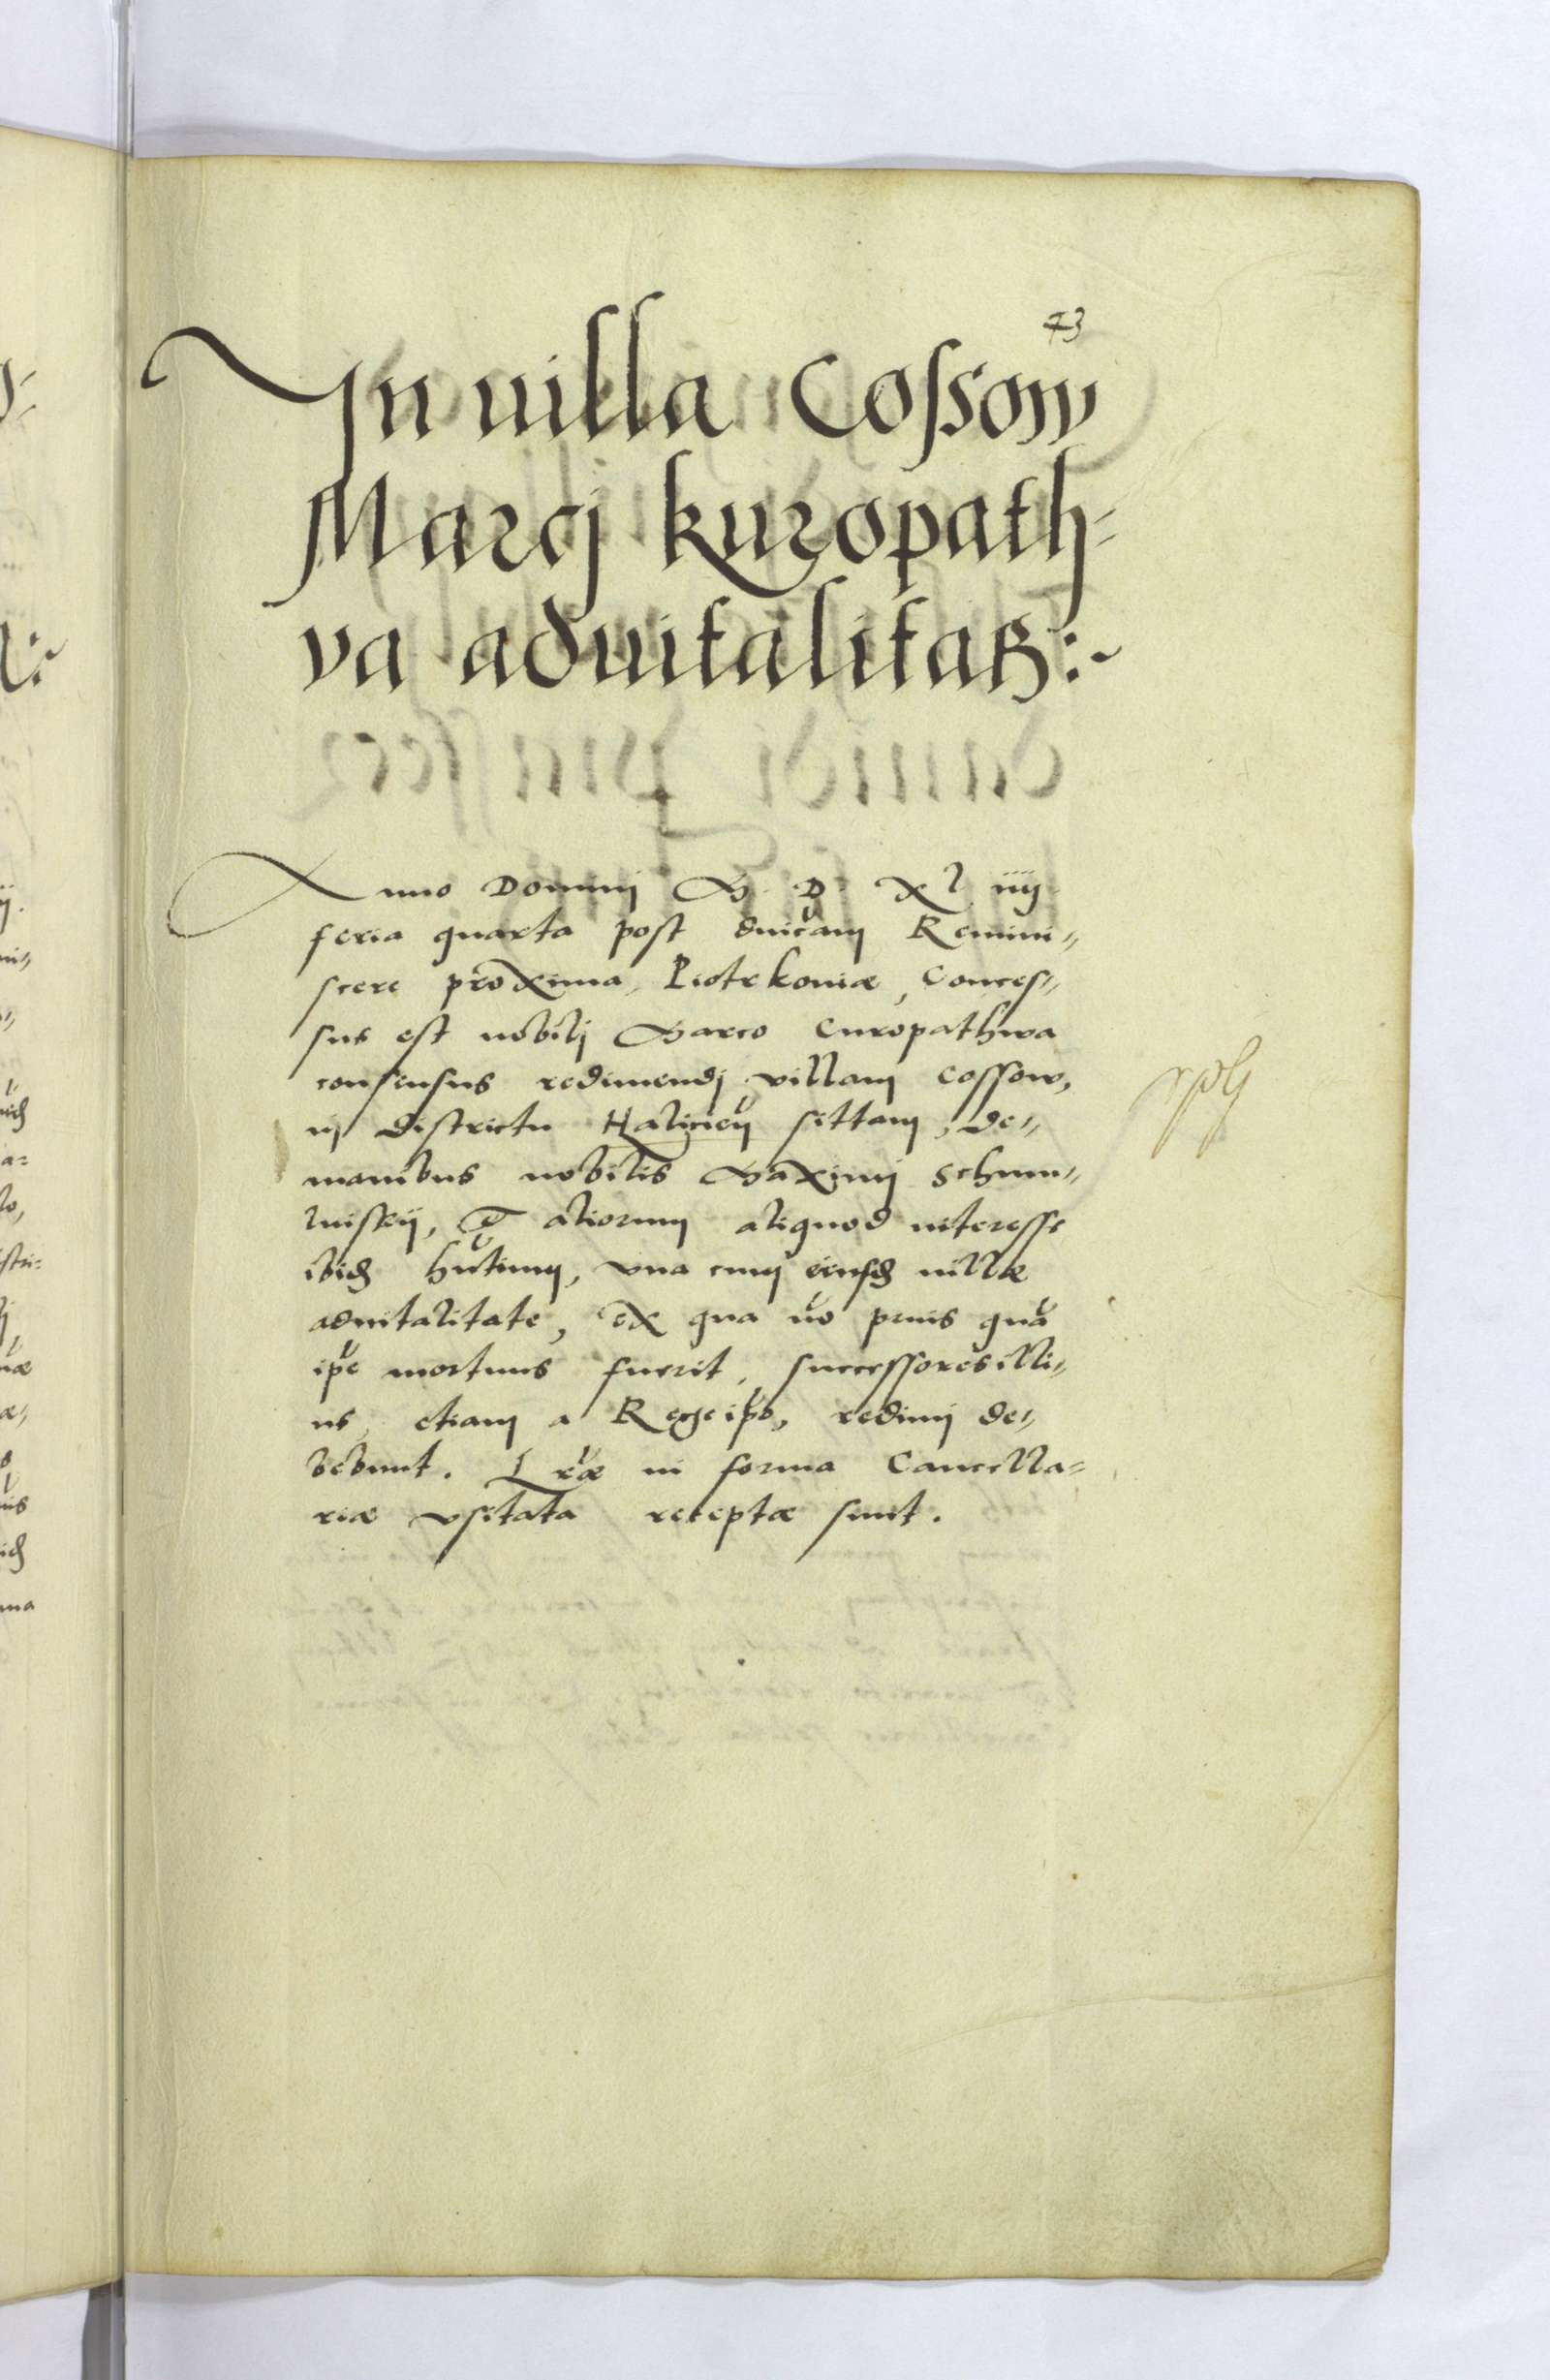 73
In uilla Cossow
Marcj kuropath-
va aduitalitas:~
Anno Dominj M. D. Xl iiij
feria quarta post dnicam Remini-
scere proxima, Piotrkouiæ, Conces-
sus est nobilj Marco Curopathwa
consensus redimendj villam Cossow,
in districtu Halicien sittam, de-
manibus nobilis Maximj Schum-
luiskij, et aliorum aliquod interesse
ibid hntium, vna cum eiusd uillæ
aduitalitate, ex qua uo prius qua
ipe mortuus fuerit, successores illi-
us, etiam a Rege ipo, redimj de-
bebunt. Lræ in forma Cancella-
riæ vsitata receptæ sunt.